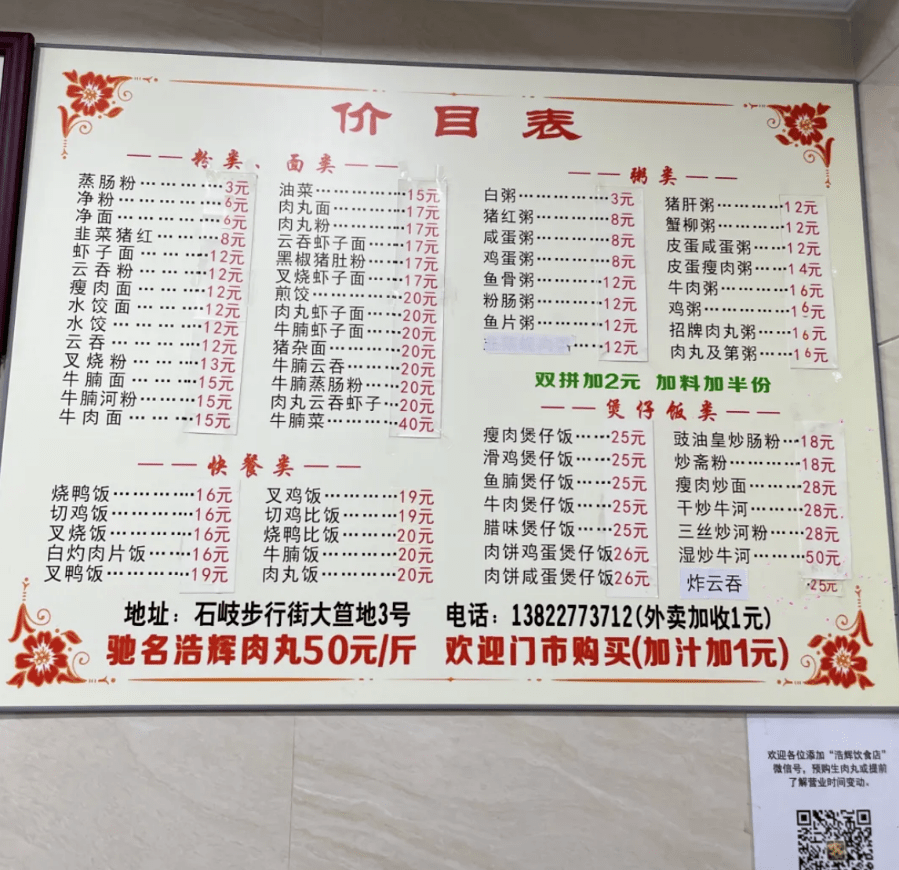 价目表
——粉类、面类——
蒸肠粉…………3元
净粉…………6元
净面…………6元
韭菜猪红………8元
虾子面…………12元
云吞粉…………12元
瘦肉面…………12元
水饺面…………12元
水饺…………12元
云吞…………12元
叉烧粉…………13元
牛腩面…………15元
牛腩河粉………15元
牛肉面…………15元
油菜……………15元
肉丸面…………17元
肉丸粉…………17元
云吞虾子面……17元
黑椒猪肚粉……17元
叉烧虾子面……17元
煎饺……………20元
肉丸虾子面……20元
牛腩虾子面……20元
猪杂面…………20元
牛腩云吞………20元
牛腩蒸肠粉……20元
肉丸云吞虾子…20元
牛腩菜…………40元
——快餐类——
烧鸭饭…………16元
切鸡饭…………16元
叉烧饭…………16元
白灼肉片饭……16元
叉鸭饭…………19元
叉鸡饭…………19元
切鸡比饭………19元
烧鸭比饭………20元
牛腩饭…………20元
肉丸饭…………20元
——粥类——
白粥……………3元
猪红粥…………8元
咸蛋粥…………8元
鸡蛋粥…………8元
鱼骨粥…………12元
粉肠粥…………12元
鱼片粥…………12元
……12元
猪肝粥…………12元
蟹柳粥…………12元
皮蛋咸蛋粥……12元
皮蛋瘦肉粥……14元
牛肉粥…………16元
鸡粥……………16元
招牌肉丸粥……16元
肉丸及第粥……16元
双拼加2元 加料加半份
——煲仔饭类——
瘦肉煲仔饭……25元
滑鸡煲仔饭……25元
鱼腩煲仔饭……25元
牛肉煲仔饭……25元
腊味煲仔饭……25元
肉饼鸡蛋煲仔饭26元
肉饼咸蛋煲仔饭26元
豉油皇炒肠粉…18元
炒斋粉…………18元
瘦肉炒面………28元
干炒牛河………28元
三丝炒河粉……28元
湿炒牛河………50元
炸云吞 25元
地址：石岐步行街大笪地3号 电话：13822773712(外卖加收1元)
驰名浩辉肉丸50元/斤 欢迎门市购买(加汁加1元)
欢迎各位添加“浩辉饮食店”
微信号，预购生肉丸或提前
了解营业时间变动。